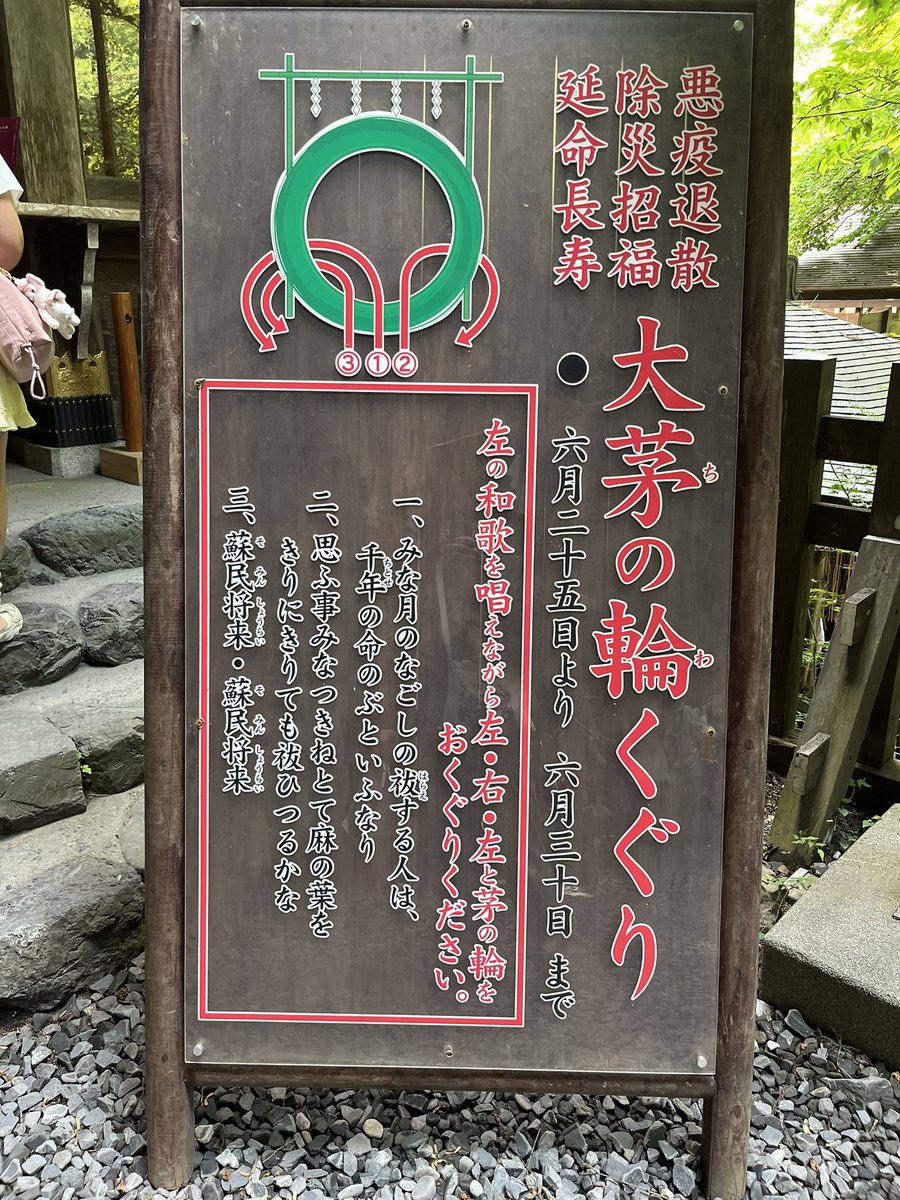 悪疫退散
除災招福
延命長寿
大茅の輪くぐり
ち
わ
●六月二十五日より 六月三十日まで
左の和歌を唱えながら左・右・左と茅の輪を
おくぐりください。
一、みな月のなごしの祓する人は、
はらえ
千年の命のぶといふなり
ちとせ
二、思ふ事みなつきねとて麻の葉を
きりにきりても祓ひつるかな
三、蘇民将来・蘇民将来
そみんしょうらい そみんしょうらい
③①②